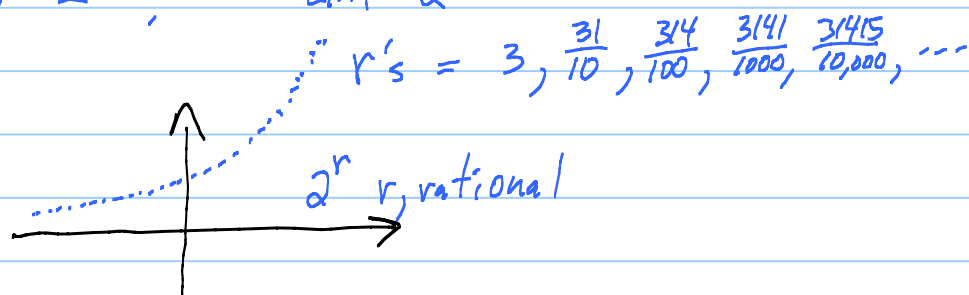 r's = 3, 31/10, 314/100, 3141/1000, 31415/10,000, ...
2^r r, rational